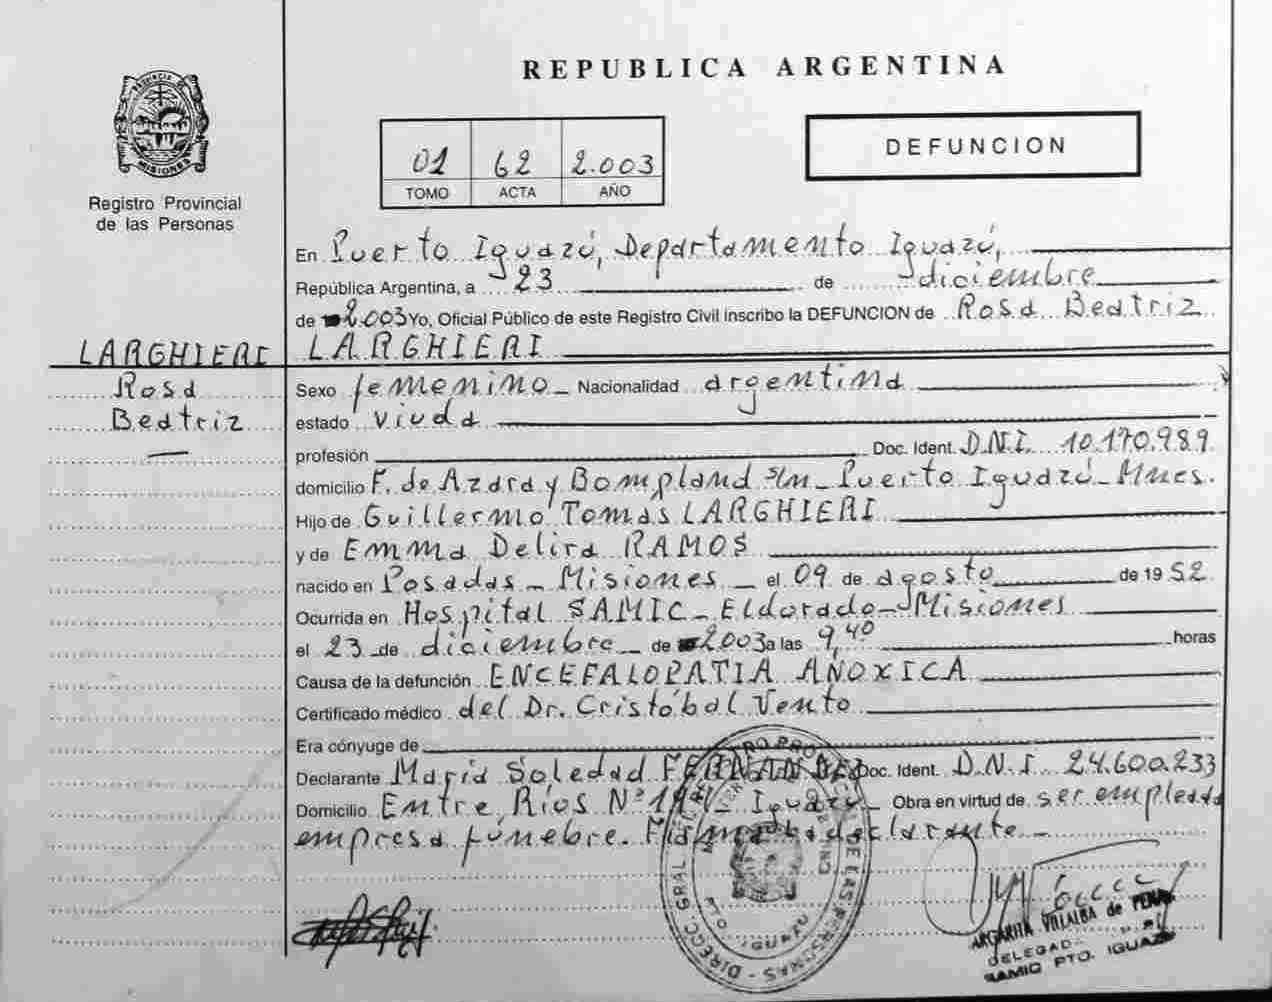 REPUBLICA ARGENTINA
PROVINCIA DE
MISIONES
Registro Provincial
de las Personas
01 62 2.003
TOMO ACTA AÑO
DEFUNCION
En Puerto Iguazú, Departamento Iguazú,
República Argentina, a 23 de diciembre
de 2.003 Yo, Oficial Público de este Registro Civil inscribo la DEFUNCION de Rosa Beatriz
LARGHIERI
LARGHIERI
Rosa
Beatriz
Sexo femenino Nacionalidad argentina
estado viuda
profesión Doc. Ident. D.N.I. 10.170.989
domicilio F. de Azara y Bompland s/n Puerto Iguazú - Mnes.
Hijo de Guillermo Tomas LARGHIERI
y de Emma Delira RAMOS
nacido en Posadas - Misiones el 09 de agosto de 1952
Ocurrida en Hospital SAMIC - Eldorado - Misiones
el 23 de diciembre de 2003 a las 9,40 horas
Causa de la defunción ENCEFALOPATIA AÑOXICA
Certificado médico del Dr. Cristóbal Vento
Era cónyuge de
Declarante María Soledad Doc. Ident. D.N.I. 24.600.233
Domicilio Entre Ríos Nº Iguazú Obra en virtud de ser empleada
empresa fúnebre. declarante.
DIRECC. GRAL. DE LAS PERSONAS
PTO. IGUAZU
MARGARITA VILLALBA de
DELEGADA
SAMIC PTO. IGUAZU